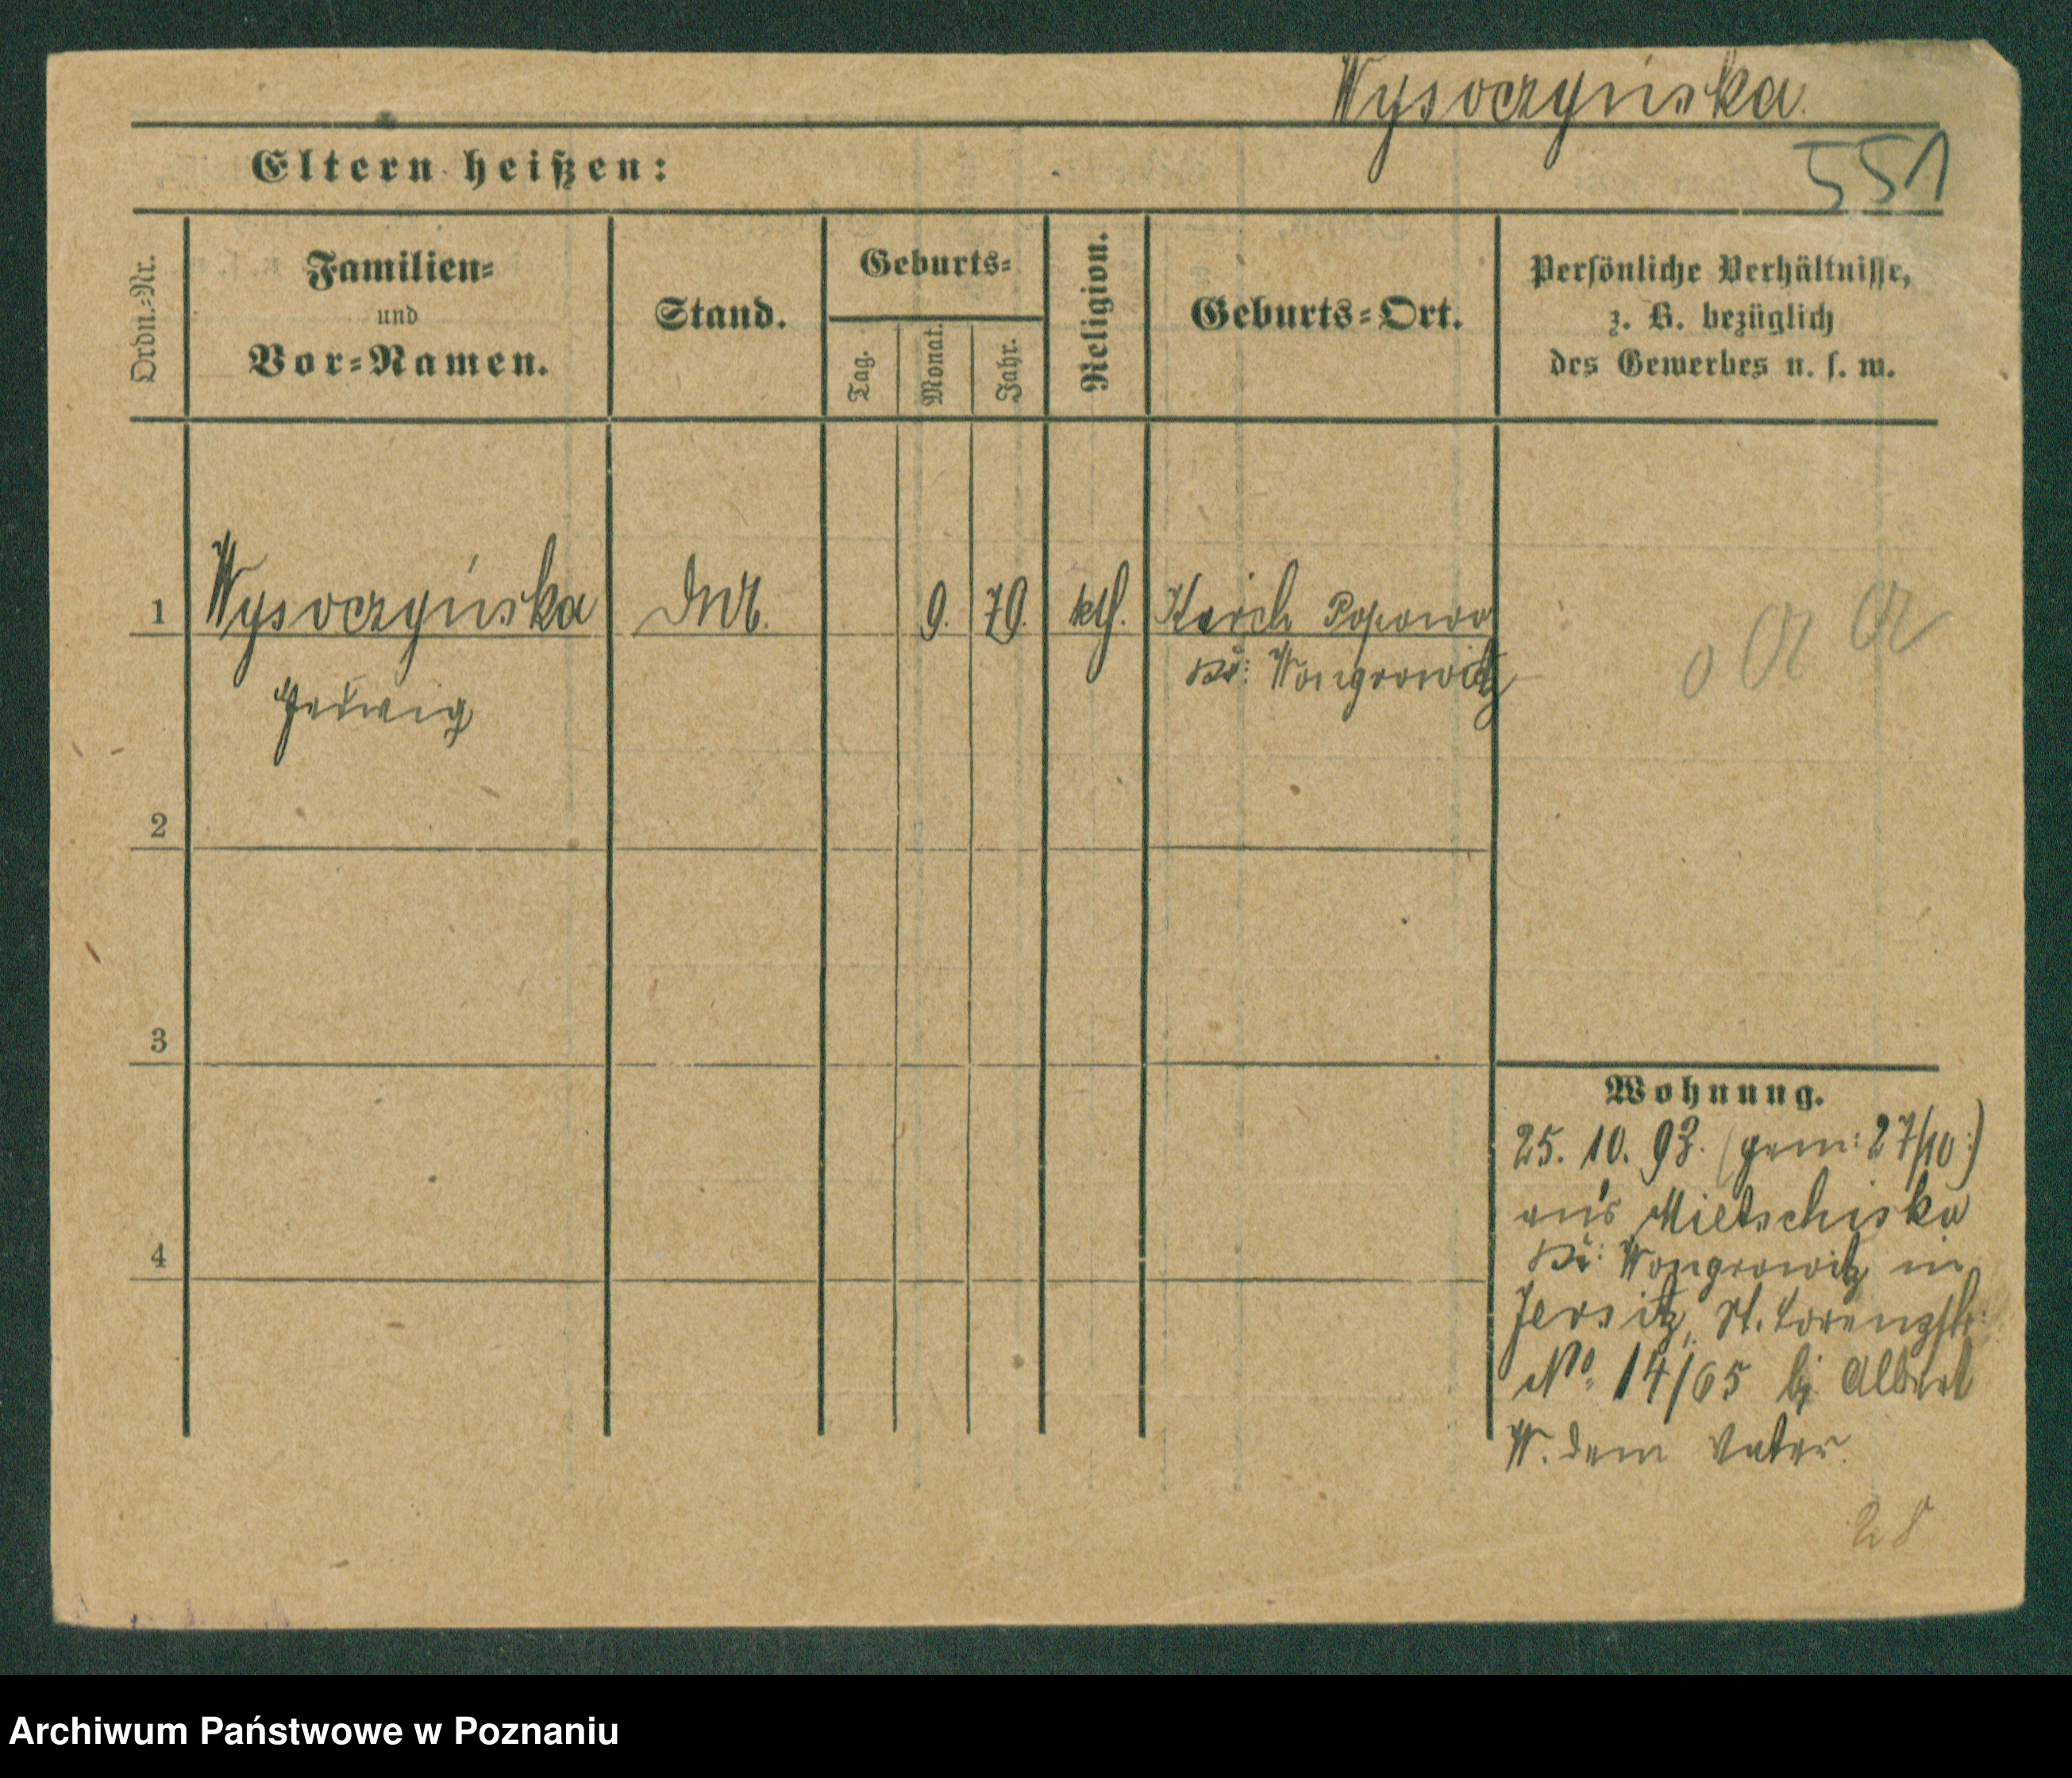 Wysoczyńska
551
Eltern heißen:
Ordn.-Nr.
Familien-
und
Vor-Namen.
Stand.
Geburts-
Tag.
Monat.
Jahr.
Religion.
Geburts-Ort.
Persönliche Verhältnisse,
z. B. bezüglich
des Gewerbes u. s. w.
1 Wysoczyńska 9. 70. kth. Kirch Popowo
Kr: Wongrowitz
Hedwig
2
3
4
Wohnung.
25. 10. 93. (gem: 27/10:)
aus Mietschisko
Kr: Wongrowitz in
Jersitz, St. Lorenzstr:
No. 14/65 bei Albert
W. dem Vater.
28
Archiwum Państwowe w Poznaniu